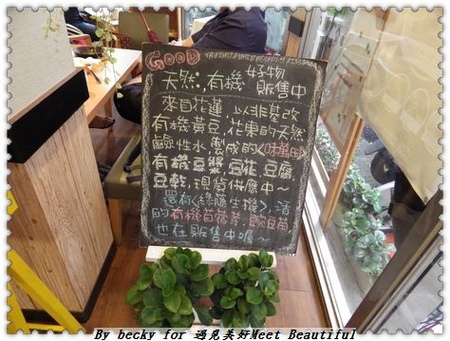 GOOD
天然,有機 好物
販售中
來自花蓮 以非基改
有機黃豆,花東的天然
鹼性水,製成的<味萬田>
有機豆漿、豆花、豆腐
豆乾,現貨供應中~
還有<綠藤生機>,活
的有機苜蓿芽,豌豆苗
也在販售中喔~
By becky for 遇見美好Meet Beautiful